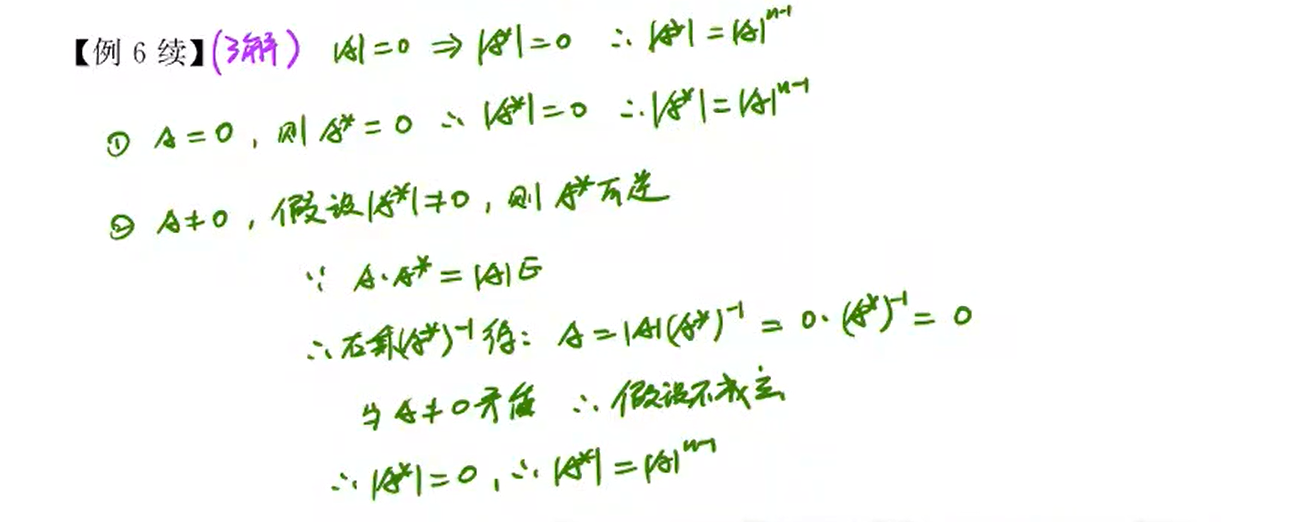 【例 6 续】(了解) |A|=0 ⇒ |A*|=0 ∴ |A*|=|A|ⁿ⁻¹
① A=0, 则 A*=0 ∴ |A*|=0 ∴ |A*|=|A|ⁿ⁻¹
② A≠0, 假设|A*|≠0, 则 A*可逆
∵ A·A*=|A|E
∴右乘(A*)⁻¹得: A=|A|(A*)⁻¹=0·(A*)⁻¹=0
与A≠0矛盾 ∴ 假设不成立
∴|A*|=0, ∴|A*|=|A|ⁿ⁻¹